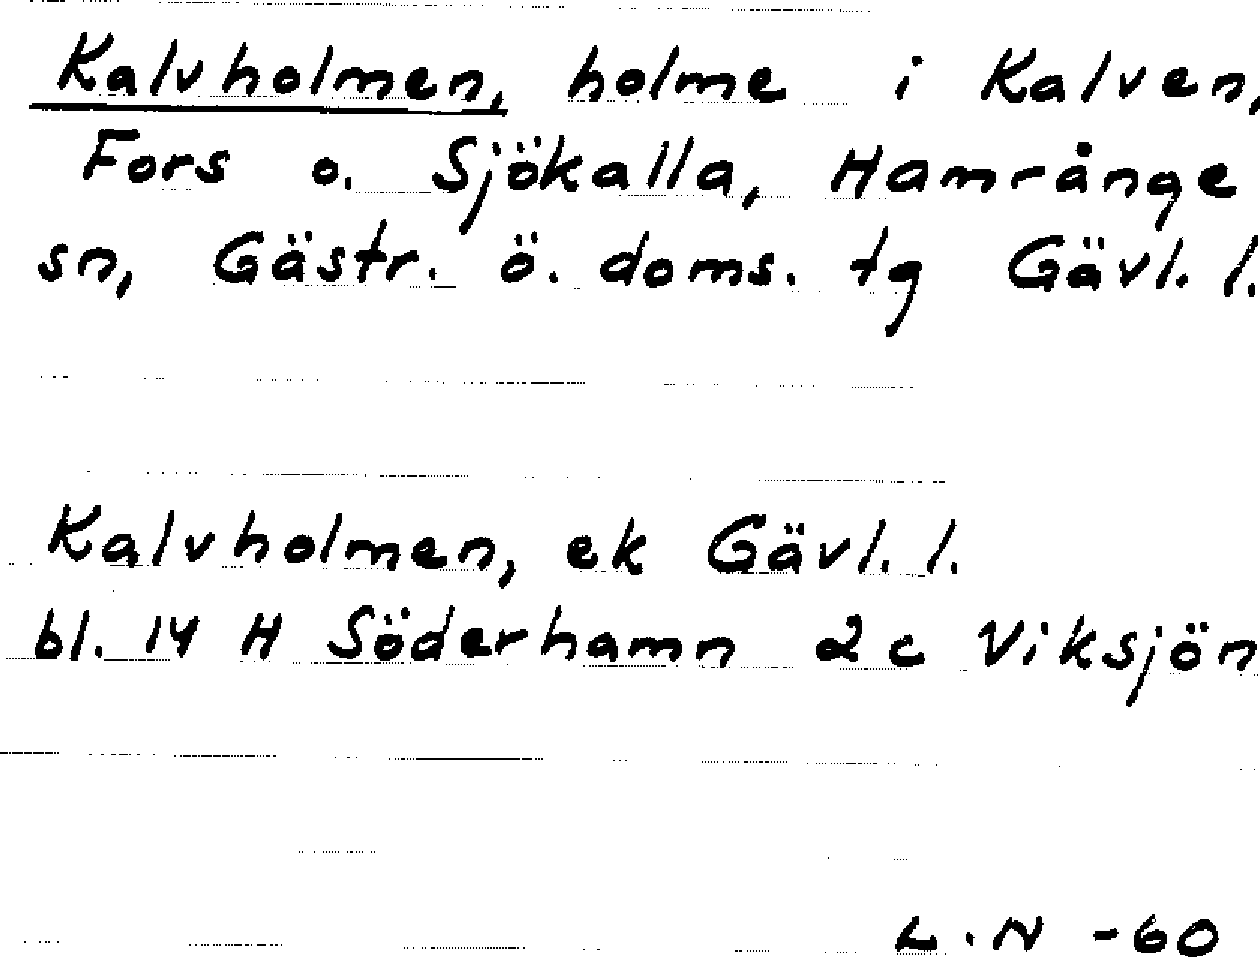 Kalvholmen, holme i Kalven,
Fors o. Sjökalla, Hamrånge
sn, Gästr. ö. doms. tg Gävl. l.
Kalvholmen, ek Gävl. l.
bl. 14 H Söderhamn 2 c Viksjön
L.N -60